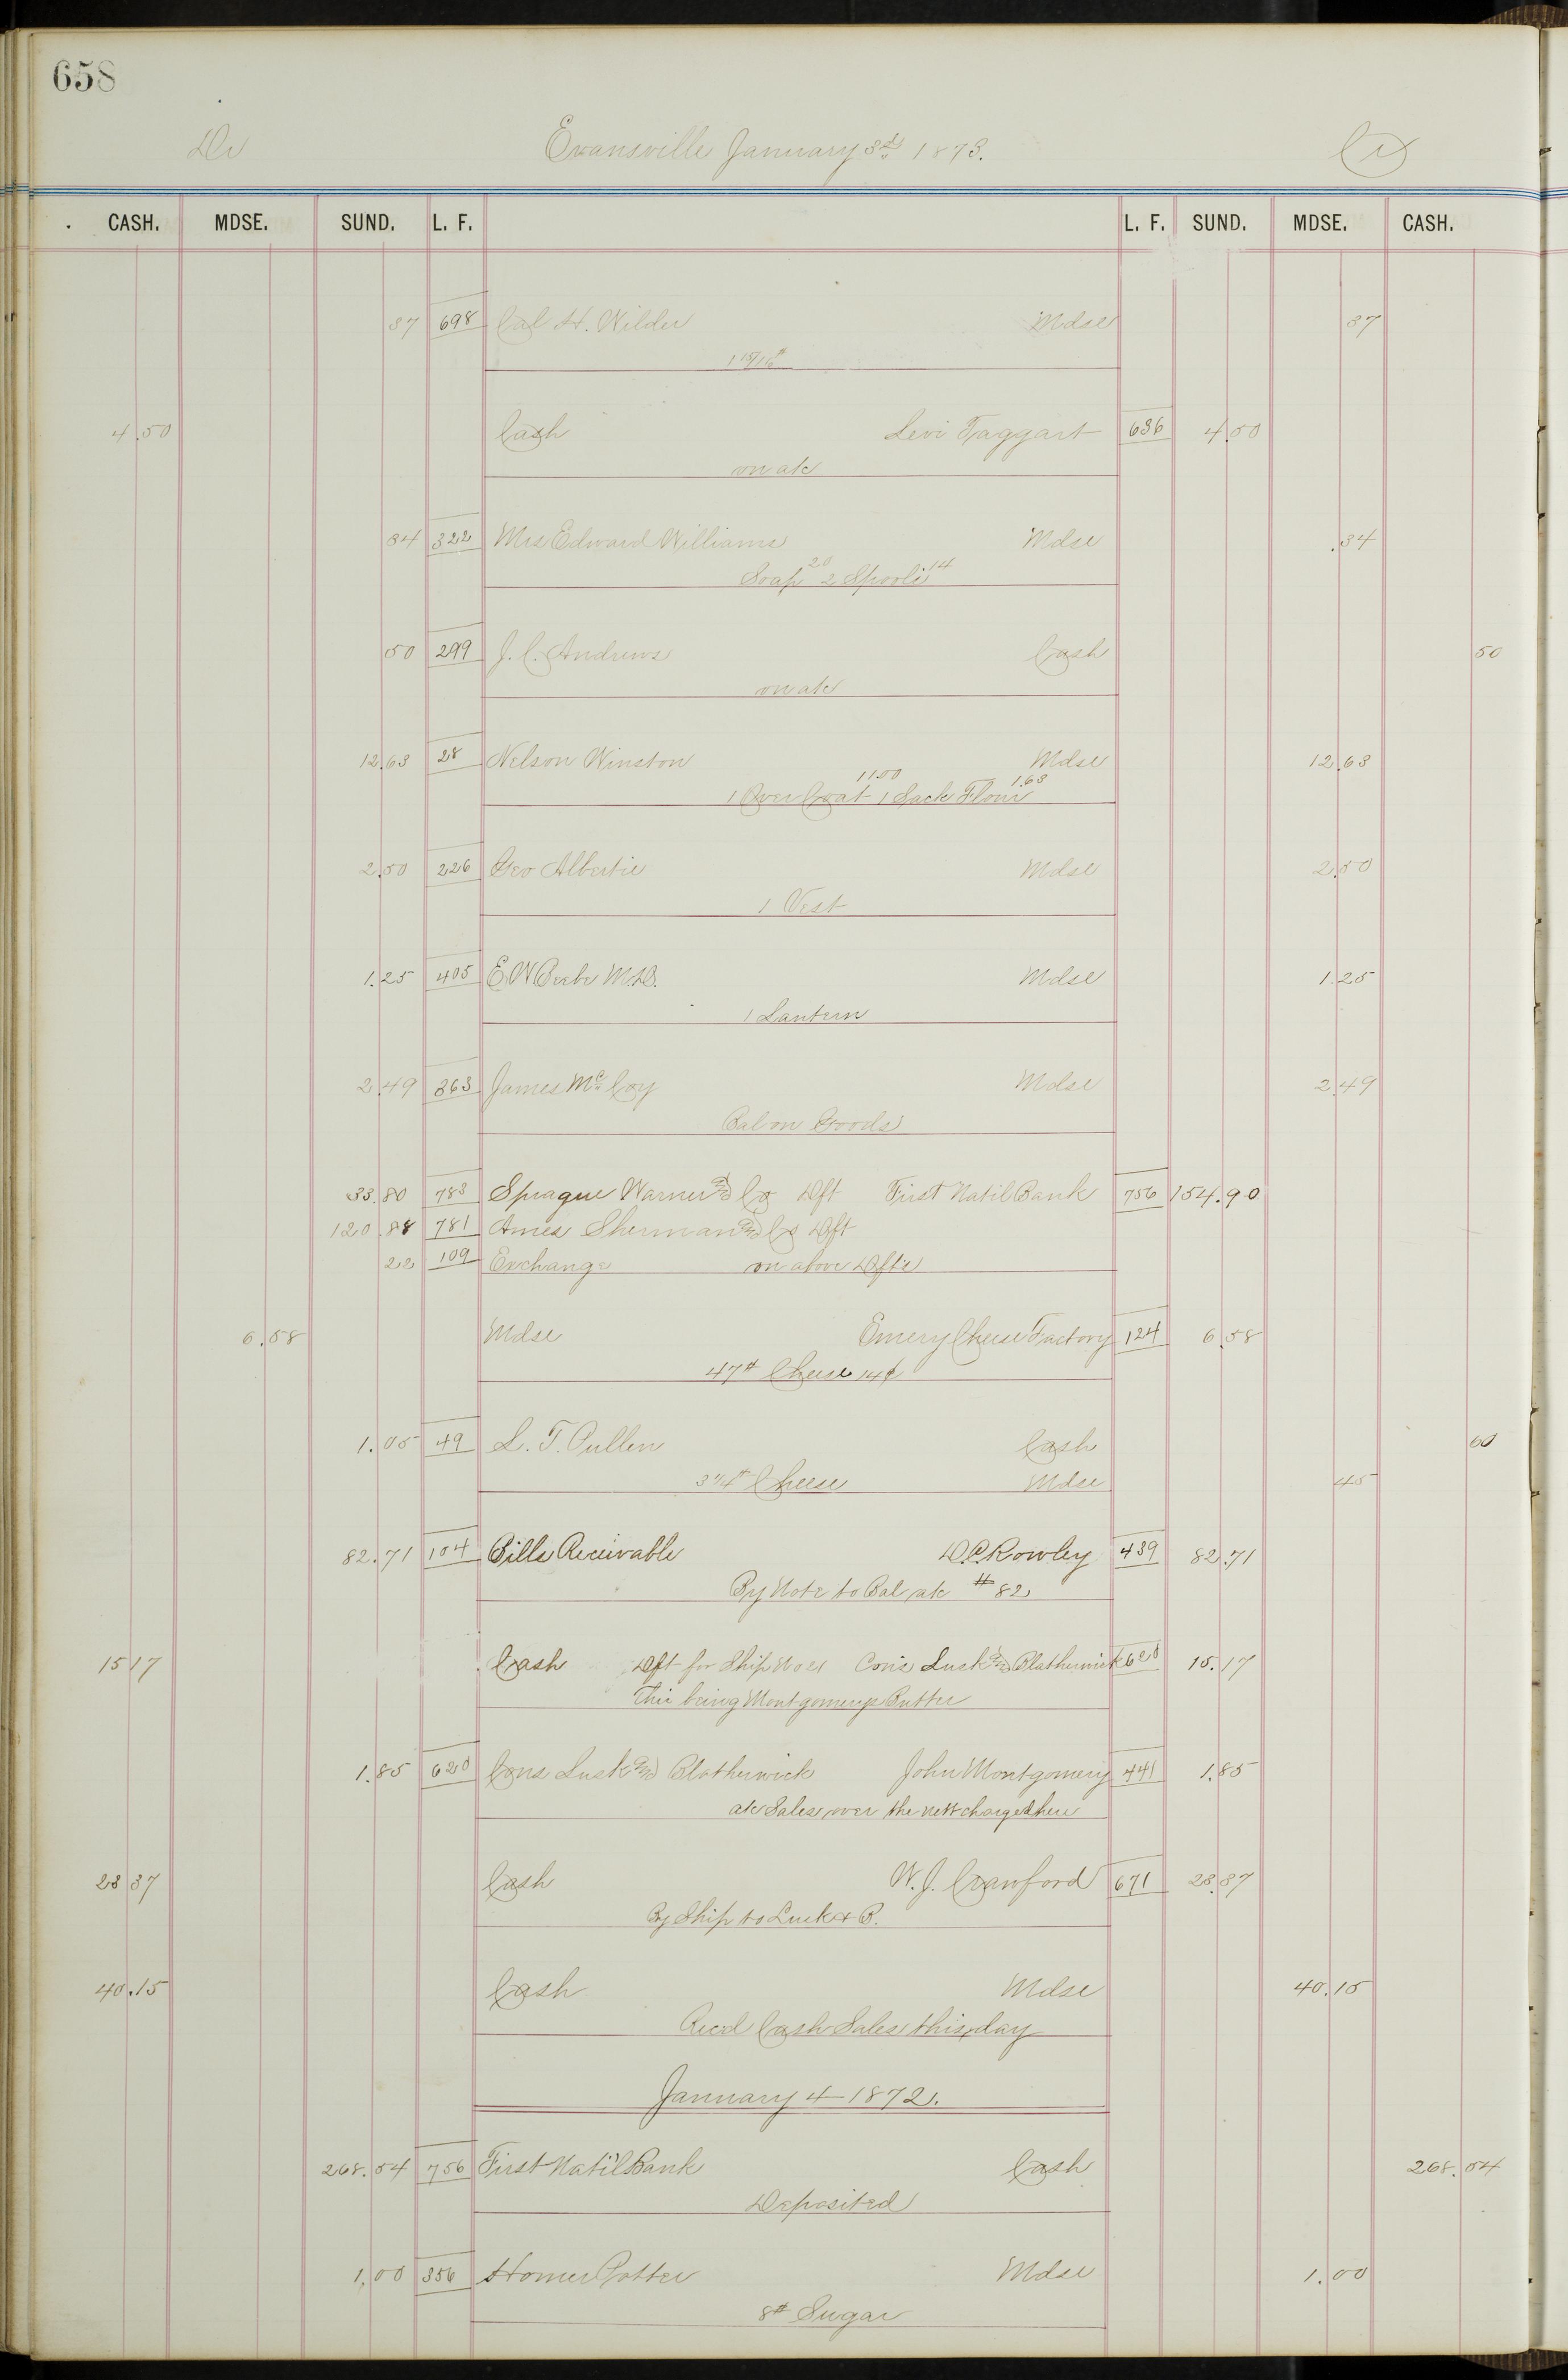 658
Dr Evansville January 3rd 1873. Cr
CASH. MDSE. SUND. L. F. L. F. SUND. MDSE. CASH.
37 698 Cal H. Wilder Mdse 37
1 15/16#
4.50 Cash Levi Taggart 636 4.50
on a/c
34 322 Mrs Edward Williams Mdse .34
Soap 20 2 Spools 14
50 299 J. C. Andrews Cash 50
on a/c
12.63 28 Nelson Winston Mdse 12.63
1 Over Coat 11.00 1 Sack Flour 1.63
2.50 226 Geo Albertie Mdse 2.50
1 Vest
1.25 405 E W Beebe M.D. Mdse 1.25
1 Lantern
2.49 363 James Mc Coy Mdse 2.49
Bal on Goods
33.80 783 Sprague Warner and Co Dft First Natil Bank 756 154.90
120.88 781 Ames Sherman and Co Dft
22 109 Exchange on above Dfts
6.58 Mdse Emery Cheese Factory 124 6.58
47# Cheese 14¢
1.05 49 L. T. Pullen Cash 60
3 1/4# Cheese Mdse 45
82.71 104 Bills Receivable D.C. Rowley 439 82.71
By Note to Bal a/c # 82
15 17 Cash Dft for Ship Cons Lusk and Blatherwick 620 15.17
This being Montgomerys Butter
1.85 620 Cons Lusk and Blatherwick John Montgomery 441 1.85
a/c Sales over the nett charged here
23 37 Cash W. J. Crawford 671 23.37
By Ship to Lusk & B.
40.15 Cash Mdse 40.15
Recd Cash Sales this day
January 4 1872.
268.54 756 First Nati'l Bank Cash 268.54
Deposited
1.00 356 Homer Potter Mdse 1.00
8# Sugar